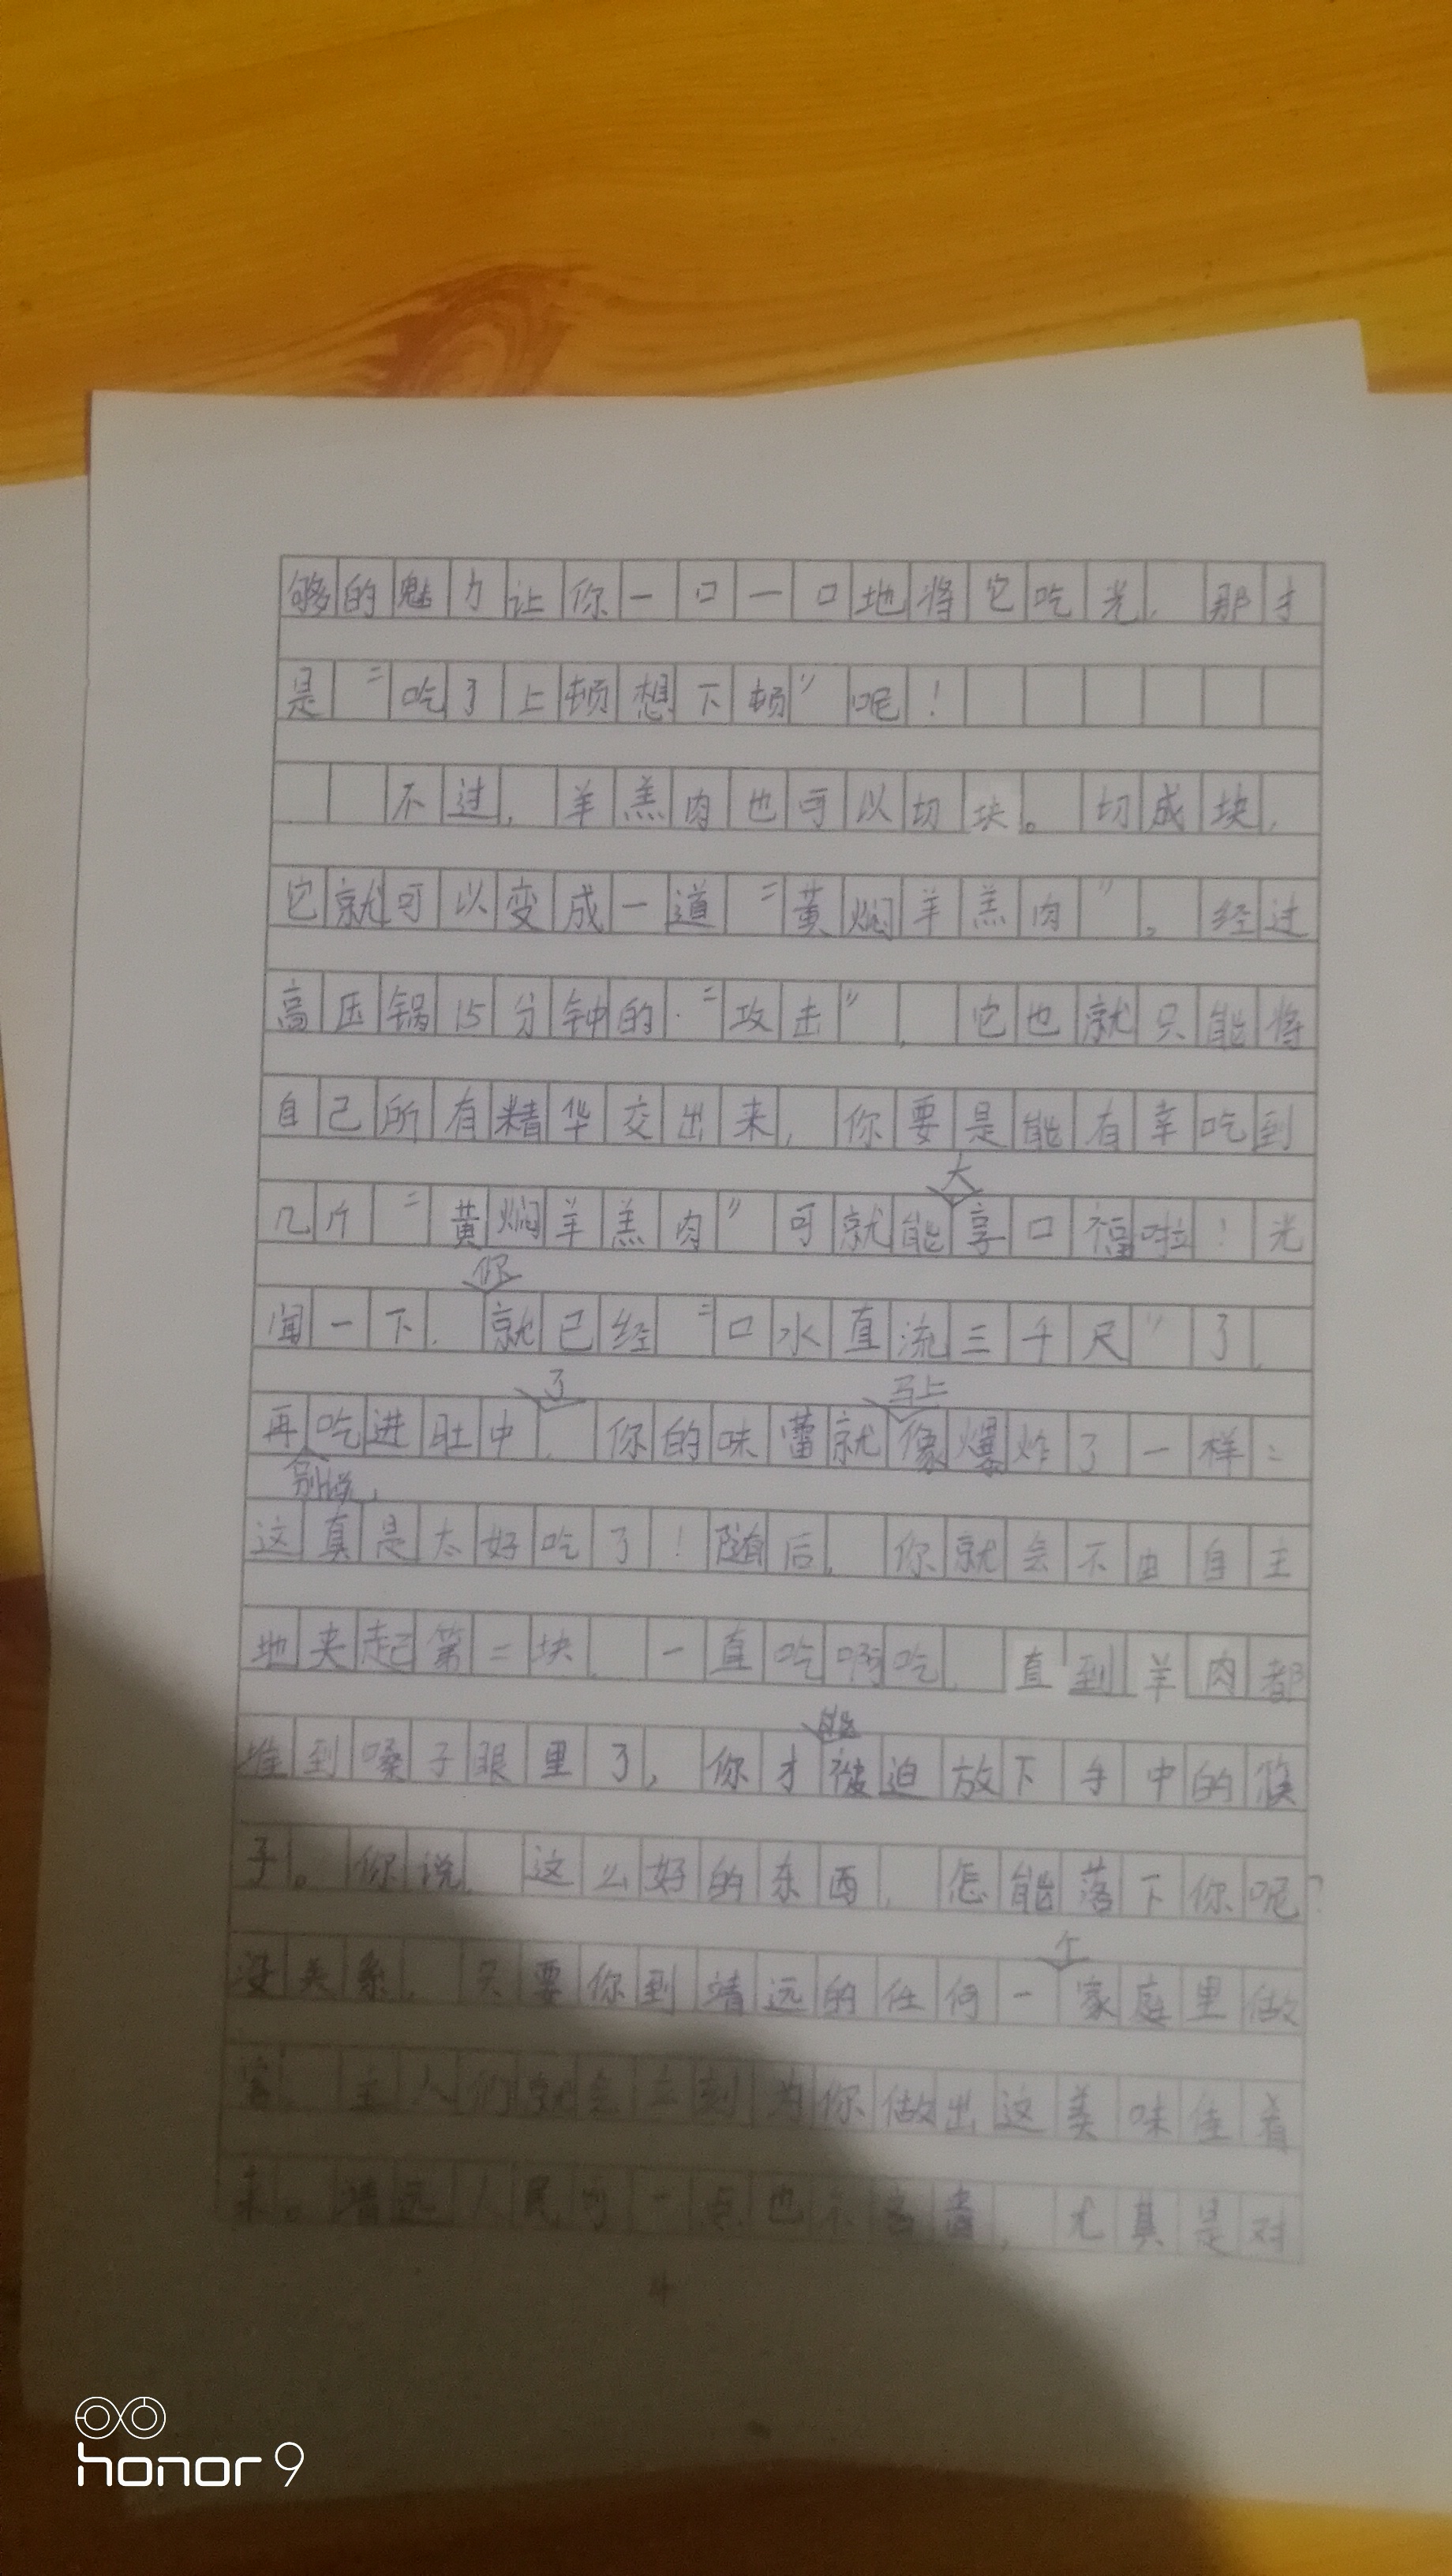 够的魅力让你一口一口地将它吃光，那才
是“吃了上顿想下顿”呢！
不过，羊羔肉也可以切块。切成块，
它就可以变成一道“黄焖羊羔肉”。经过
高压锅15分钟的“攻击”，它也就只能将
自己所有精华交出来，你要是能有幸吃到
大
几片“黄焖羊羔肉”可就能享口福啦！光
你
闻一下，就已经“口水直流三千尺”了，
了 马上
再吃进肚中，你的味蕾就像爆炸了一样：
别说，
这真是太好吃了！随后，你就会不由自主
地夹起第二块，一直吃啊吃，直到羊肉都
能
堆到嗓子眼里了，你才被迫放下手中的筷
子。你说，这么好的东西，怎能落下你呢？
个
没关系，只要你到靖远的任何一家庭里做
客，主人们就会立刻为你做出这美味佳肴
来。靖远人民可一点也不吝啬，尤其是对
4
honor 9